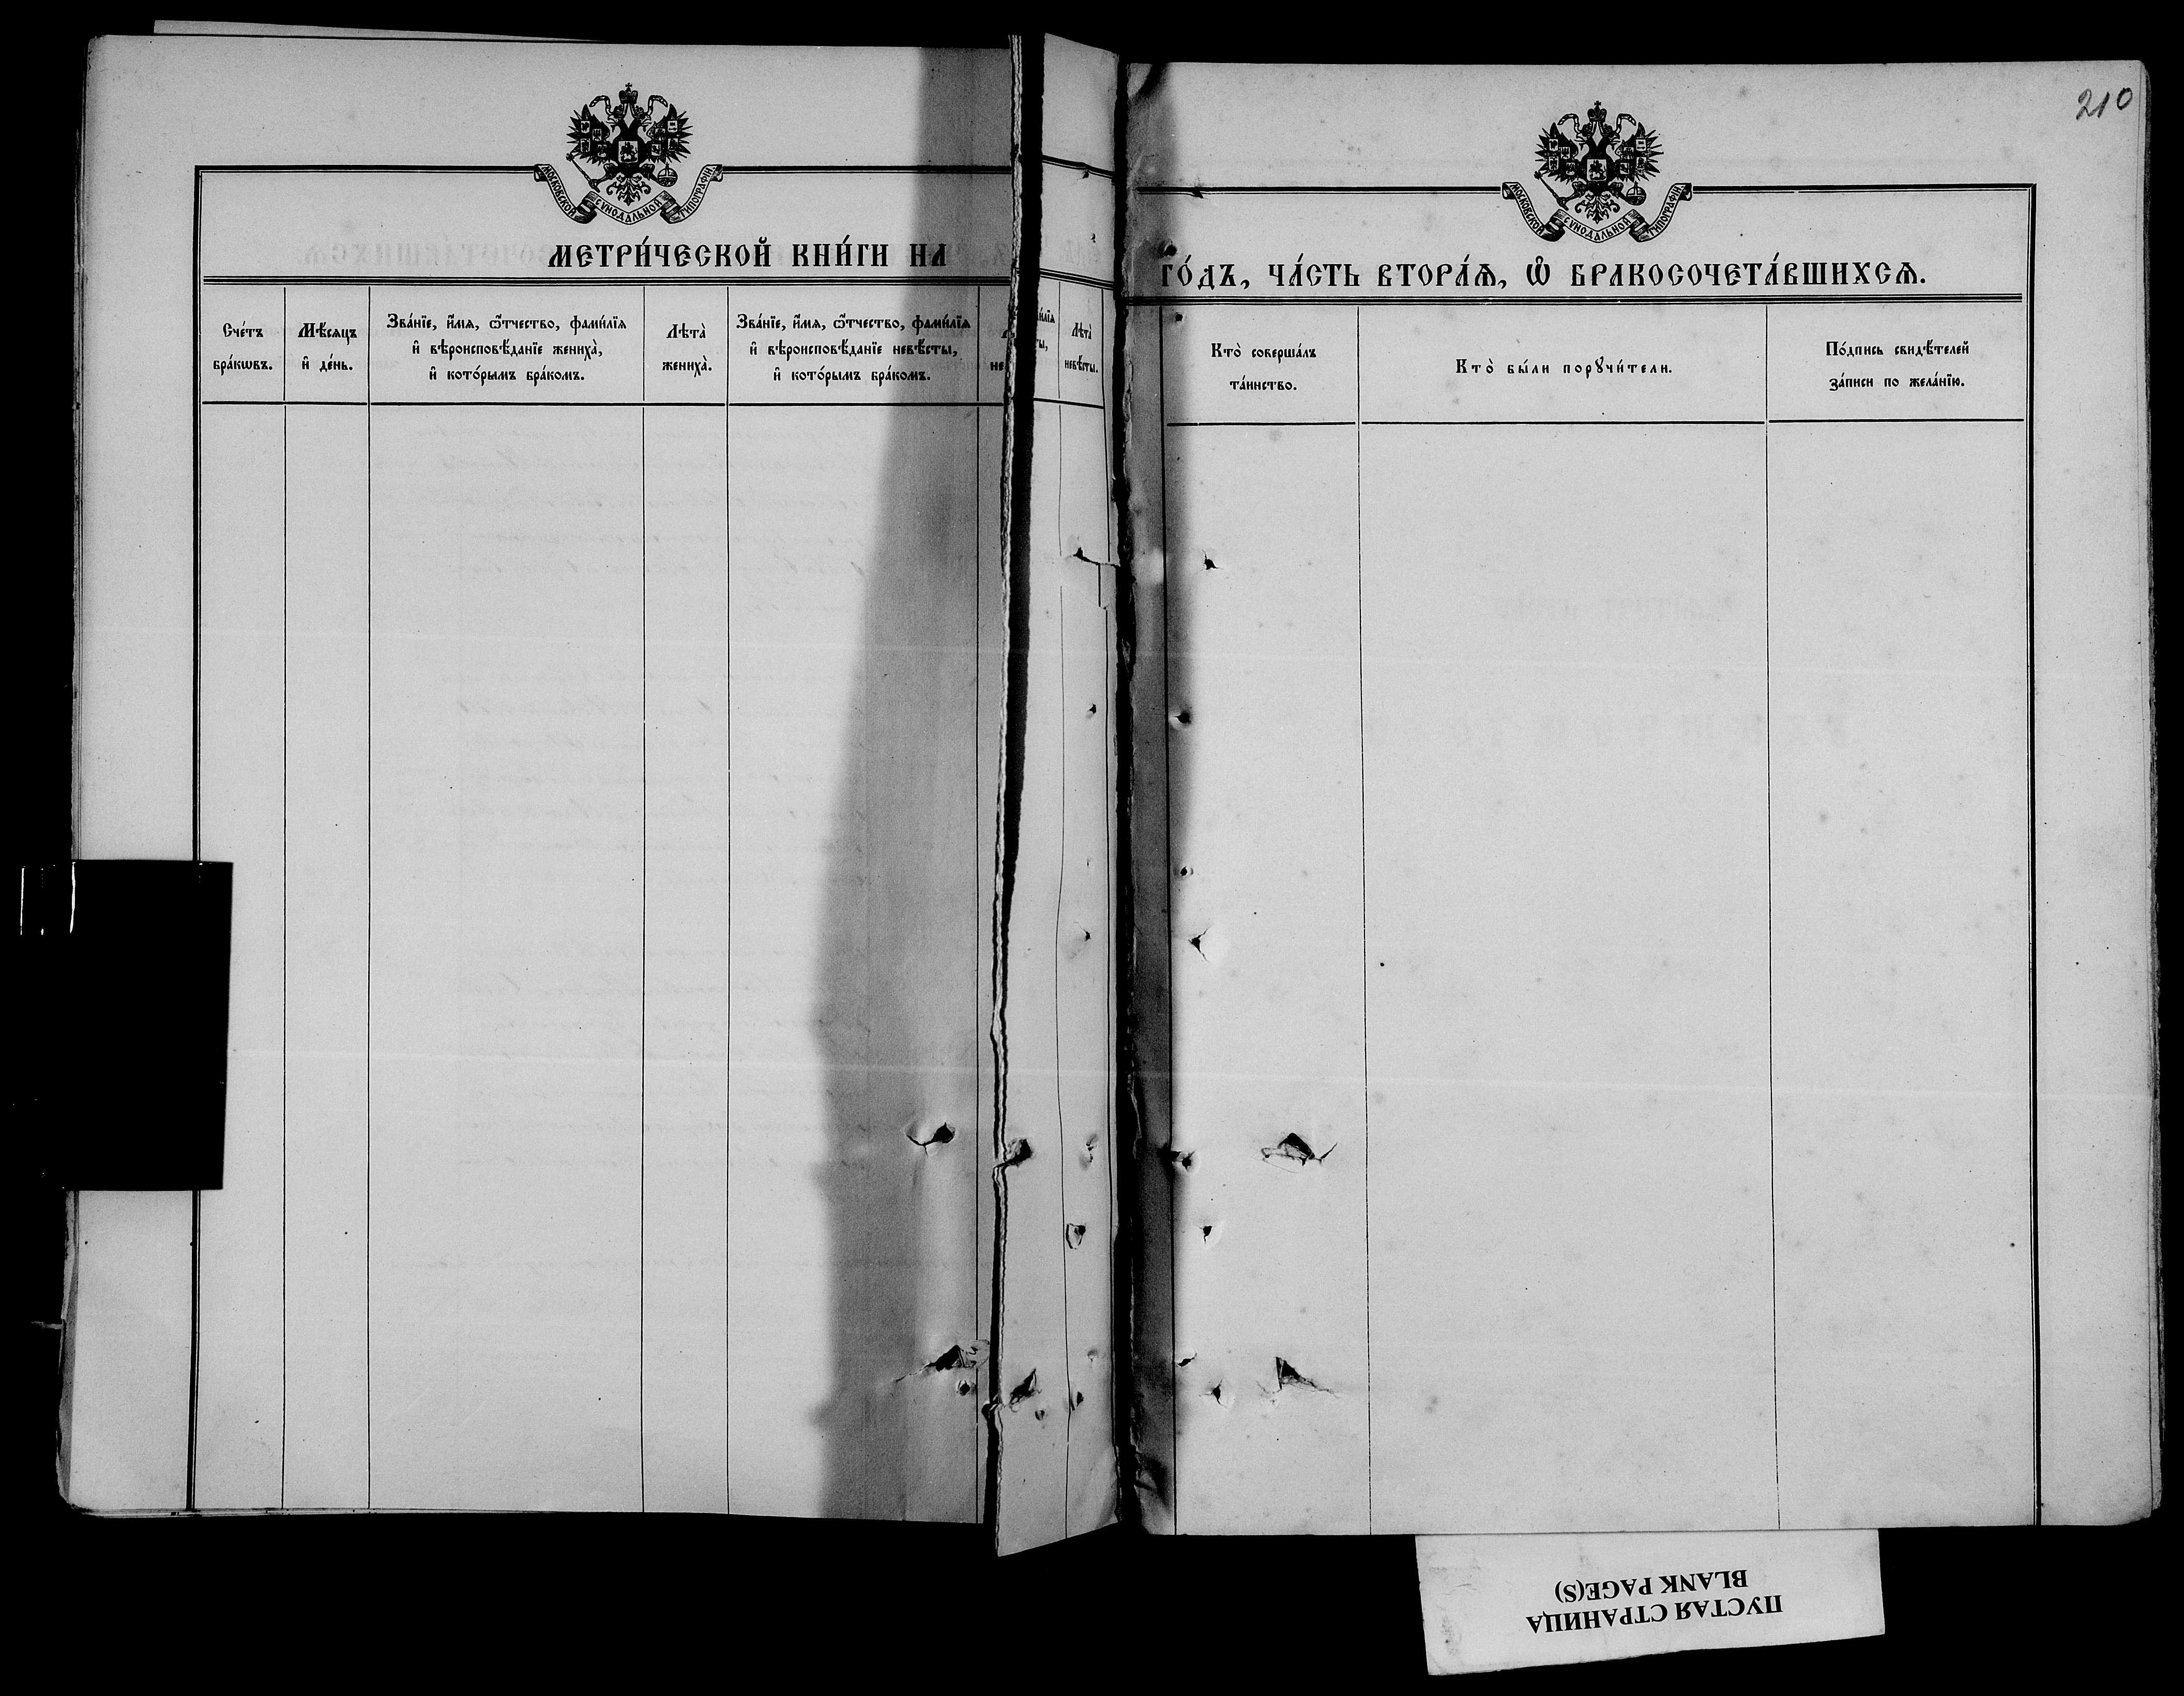 210
МОСКОВСКОЙ СѴНОДАЛЬНОЙ ТИПОГРАФІИ
МЕТРИ́ЧЕСКОЙ КНИ́ГИ НА
Сче́тъ
бра́кѡвъ.
Мѣ́сяцъ
и҆ де́нь.
Зва́нїе, и҆́мя, ѻ҆́тчество, фами́лїя
и҆ вѣроисповѣ́данїе жениха̀,
и҆ кото́рымъ бра́комъ.
Лѣта̀
жениха̀.
Зва́нїе, и҆́мя, ѻ҆́тчество, фами́лїя
и҆ вѣроисповѣ́данїе невѣ́сты,
и҆ кото́рымъ бра́комъ.
не
и́лїя
ты,
Лѣта̀
невѣ́сты.
МОСКОВСКОЙ СѴНОДАЛЬНОЙ ТИПОГРАФІИ
ГО́ДЪ, ЧА́СТЬ ВТОРА́Ѧ, Ѡ҆ БРАКОСОЧЕТА́ВШИХСѦ.
Кто̀ соверша́лъ
та́инство.
Кто̀ бы́ли порꙋчи́тели.
По́дпись свидѣ́телей
за́писи по жела́нїю.
ПУСТАЯ СТРАНИЦА
BLANK PAGE(S)